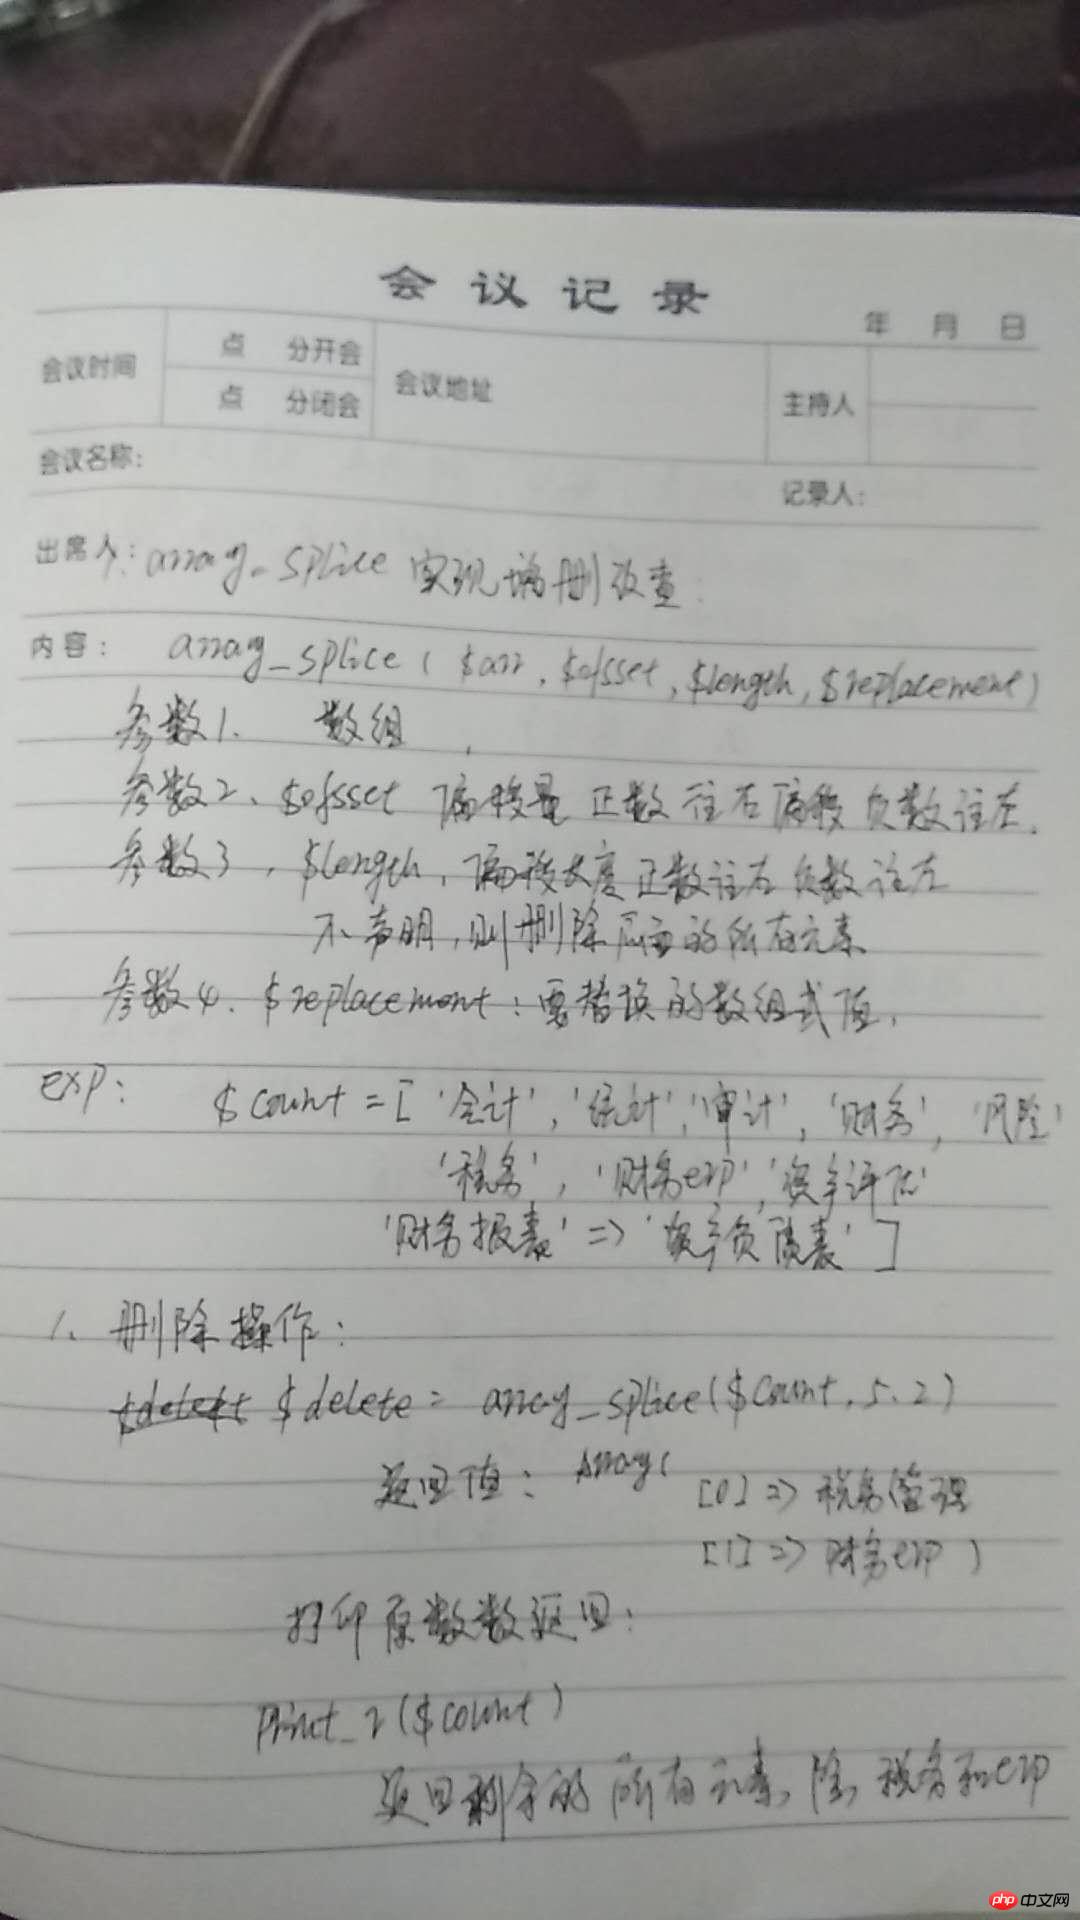 会议记录
年 月 日
会议时间 点 分开会 会议地址 主持人
点 分闭会
会议名称:
记录人:
出席人: array_splice 实现增删改查:
内容: array_splice ( $arr, $ofsset, $length, $replacement)
参数1. 数组,
参数2、$ofsset 偏移量 正数 往右偏移 负数往左.
参数3, $length, 偏移长度 正数往右 负数往左
不声明,则删除后面的所有元素
参数4. $replacement: 要替换的数组或值.
exp: $count = [ '会计', '统计', '审计', '财务', '风险'
'税务', '财务erp', '资产评估'
'财务报表' => '资产负债表' ]
1、删除操作:
$delete = array_splice($count, 5.2)
返回值: Array(
[0] => 税务管理
[1] => 财务erp )
打印原数数返回:
Print_r($count)
返回剩余的所有元素, 除, 税务和erp
php 中文网